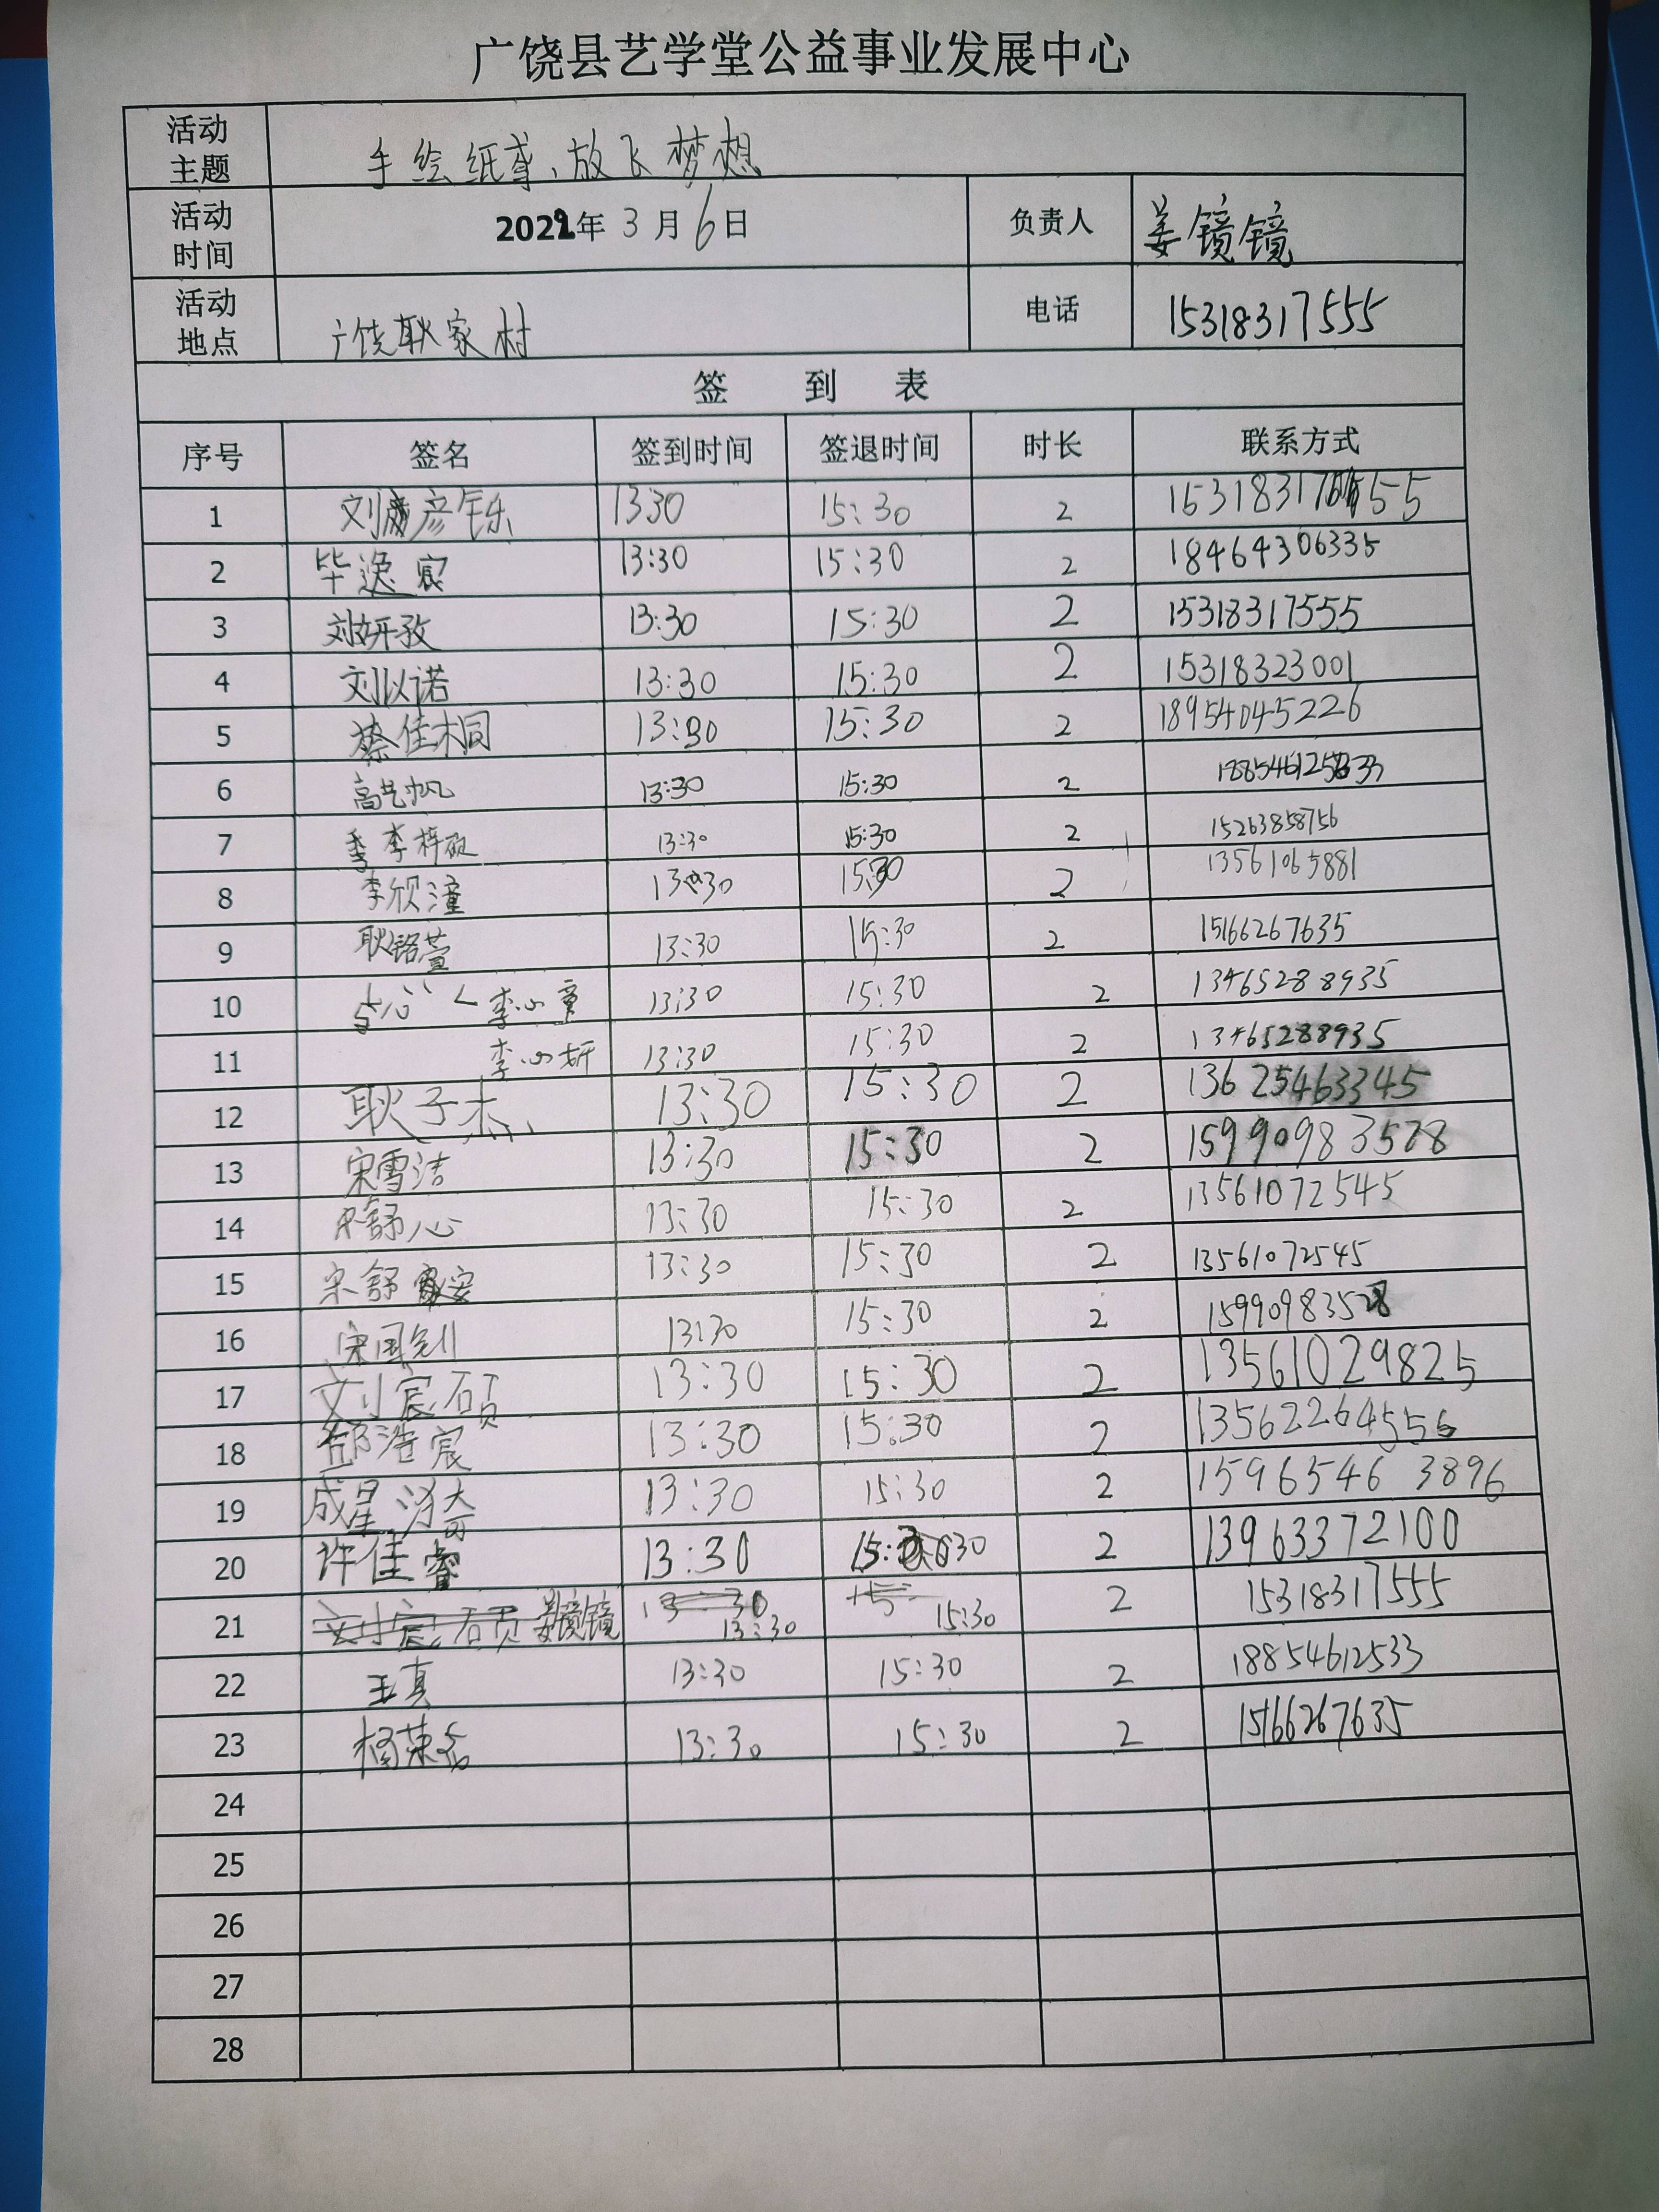 广饶县艺学堂公益事业发展中心
活动主题 手绘纸鸢，放飞梦想
活动时间 2022年3月6日 负责人 姜镜镜
活动地点 广饶耿家村 电话 15318317555
签到表
序号 签名 签到时间 签退时间 时长 联系方式
1 刘彦铄 13:30 15:30 2
2 毕逸宸 13:30 15:30 2 18464306335
3 刘妍孜 13:30 15:30 2 15318317555
4 刘以诺 13:30 15:30 2 15318323001
5 蔡佳桐 13:30 15:30 2 18954045226
6 高艺帆 13:30 15:30 2
7 李梓硕 13:30 15:30 2 15263858756
8 李欣潼 13:30 15:30 2 13561065881
9 耿铭萱 13:30 15:30 2 15166267635
10 李心童 13:30 15:30 2 13465288935
11 李心妍 13:30 15:30 2 13465288935
12 耿子杰 13:30 15:30 2 13625463345
13 宋雪洁 13:30 15:30 2 15990983528
14 舒心 13:30 15:30 2 13561072545
15 宋舒 13:30 15:30 2 13561072545
16 宋国 13:30 15:30 2 15990983528
17 刘宸硕 13:30 15:30 2 13561029825
18 郜浩宸 13:30 15:30 2 13562264556
19 成星 13:30 15:30 2 15965463896
20 许佳睿 13:30 15:30 2 13963372100
21 姜镜镜 13:30 15:30 2 15318317555
22 王真 13:30 15:30 2 18854612533
23 杨荣 13:30 15:30 2 15166267635
24
25
26
27
28